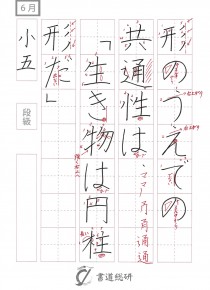 6月
形のうえでの
共通性は
「生き物は円柱
形だ」
小五
段級
マ マ 甬 甬 通 通
書道総研